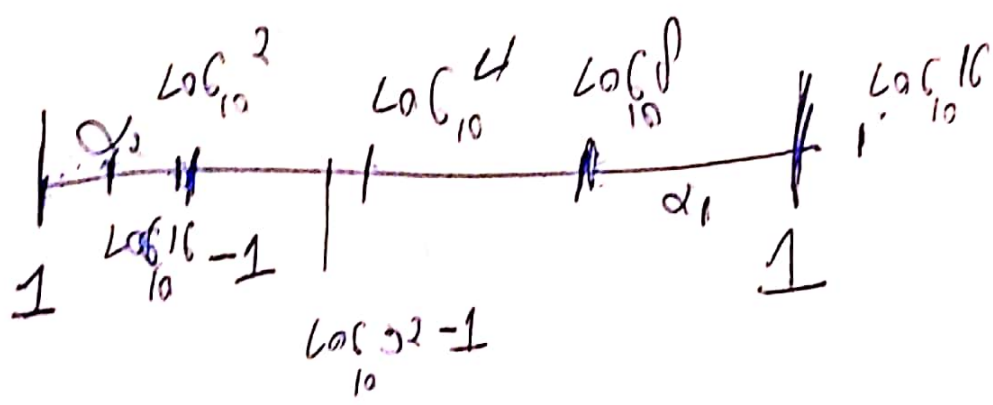 LOG₁₀ 2   LOG₁₀ 4   LOG₁₀ 8   LOG₁₀ 16
α₁   α₁
LOG₁₀ 16 - 1
1   1
LOG₁₀ 32 - 1